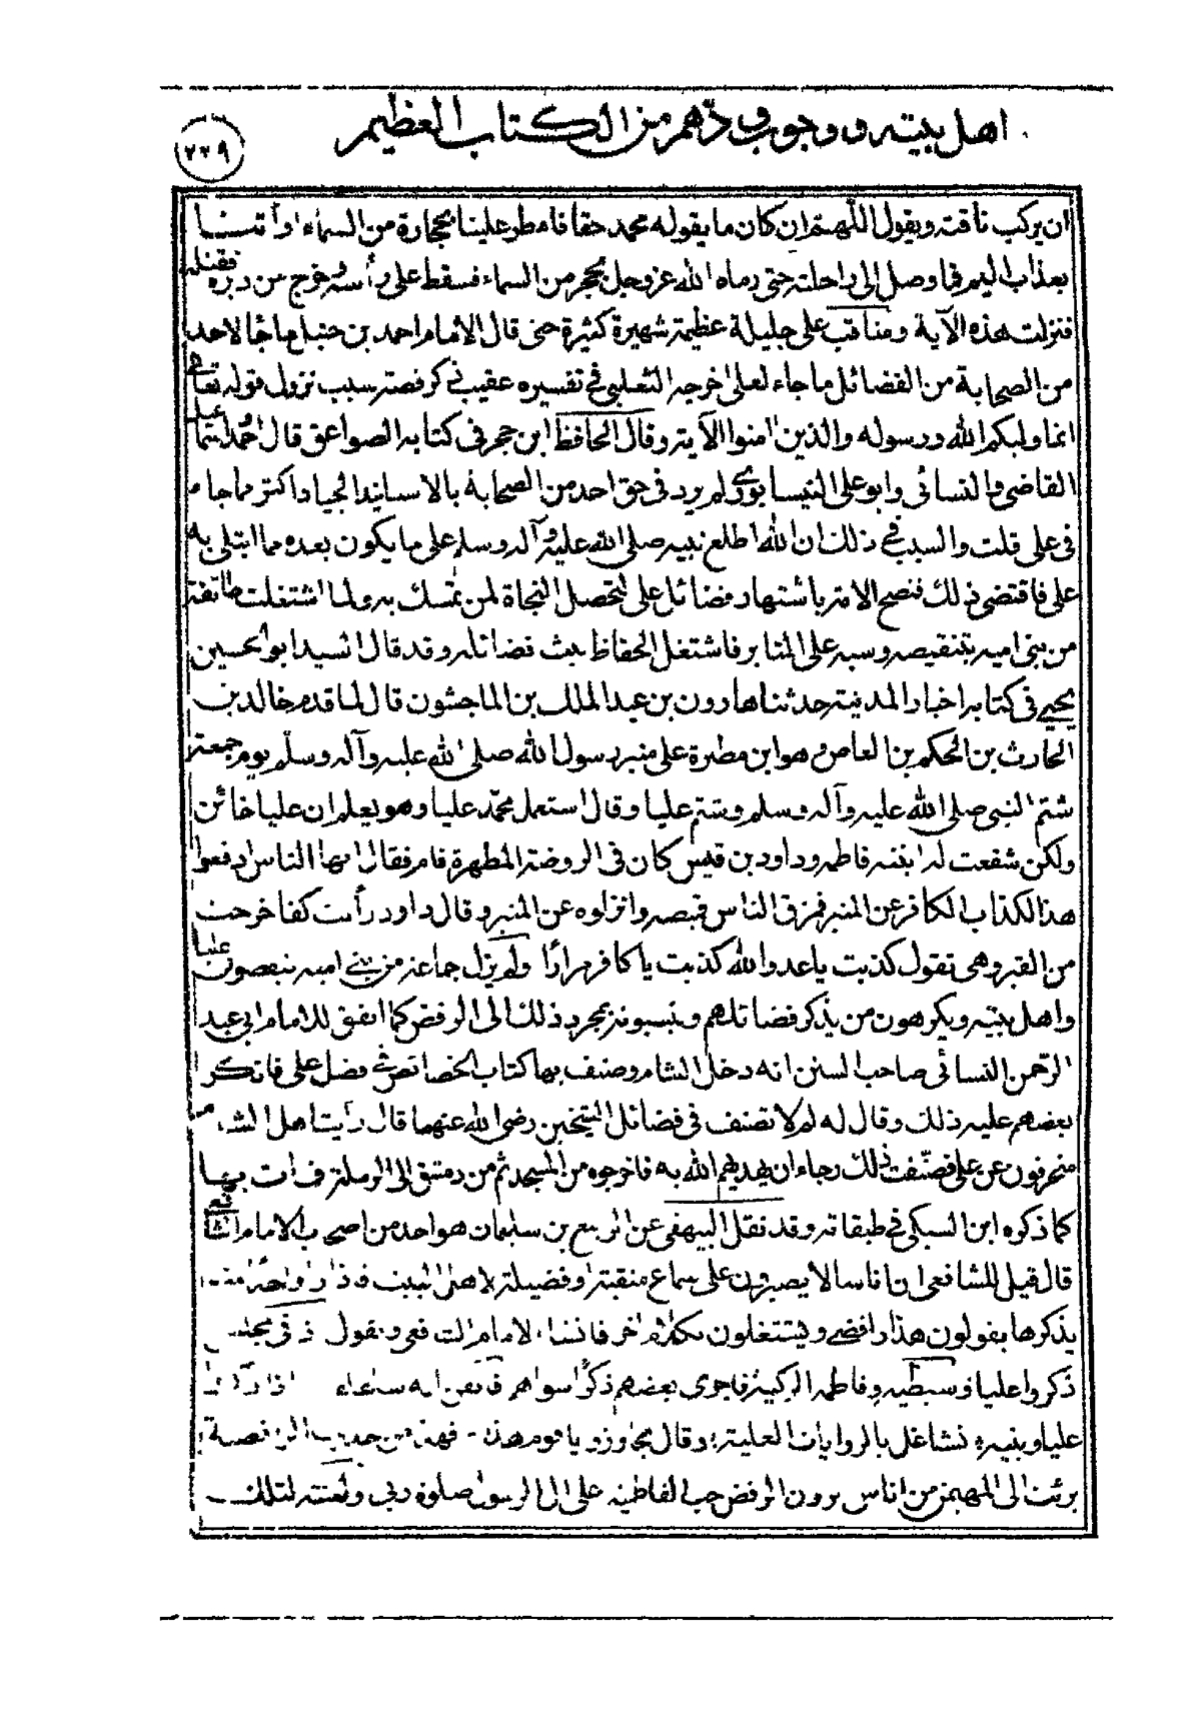 اهل بيته و وجوب ودّهم من الكتاب العظيم
٢٢٩
ان يركب ناقته ويقول اللّهم ان كان ما يقوله محمد حقا فامطر علينا بحجارة من السماء او أتنا
بعذاب اليم فما وصل الى راحلته حتى رماه الله عز وجل بحجر من السماء فسقط على رأسه خرج من دبره فقتله
فنزلت هذه الآية ومناقب على جليلة عظيمة شهيرة كثيرة حتى قال الامام احمد بن حنبل ما جا لاحد
من الصحابة من الفضائل ما جاء لعلى اخرجه الثعلبي في تفسيره عقيب ذكر قصة سبب نزول قوله تعالى
انما وليكم الله ورسوله والذين امنوا الآية وقال الحافظ ابن حجر في كتابه الصواعق قال احمد واسماعيل
القاضي والنسائي وابو على النيسابوري لم يرد في حق احد من الصحابة بالاسانيد الجياد اكثر مما جا
في على قلت والسبب في ذلك ان الله اطلع نبيه صلى الله عليه وآله وسلم على ما يكون بعده مما ابتلى به
على فاقتضى ذلك فنصح الامة باشتهار فضائل على لتحصل النجاة لمن تمسك به ولما اشتغلت طائفة
من بنى اميه بتنقيصه وسبه على المنابر فاشتغل الحفاظ ببث فضائله وقد قال السيد ابو الحسين
يحيى في كتابه اخبار المدينة حدثنا هارون بن عبد الملك بن الماجشون قال لما قدم خالد بن
الحارث بن الحكم بن العاص وهو ابن مطرة على منبر رسول الله صلى الله عليه وآله وسلم يوم جمعة
شتم النبى صلى الله عليه وآله وسلم وشتم عليا وقال استعمل محمّد عليا وهو يعلم ان عليا خائن
ولكن شفعت له ابنته فاطمه وداود بن قيس كان في الروضة المطهرة فامر فقال ايها الناس ادفعوا
هذا الكذاب الكافر عن المنبر فمزق الناس قميصه وانزلوه عن المنبر وقال داود رأيت كفا خرجت
من القبر وهي تقول كذبت يا عدو الله كذبت يا كافر مرارًا ولم يزل جماعة من بني اميه ينقصون عليا
واهل بيته ويكرهون من يذكر فضائلهم وينسبونه بمجرد ذلك الى الرفض كما اتفق للامام ابي عبد
الرحمن النسائي صاحب السنن انه دخل الشام وصنف بها كتاب الخصائص في فضل على فانكر
بعضهم عليه ذلك وقال له لم لا تصنف في فضائل الشيخين رضي الله عنهما قال رأيت اهل الشام
منحرفون عن على فصنّفت ذلك رجاء ان يهديهم الله به فاخرجوه من المسجد ثم من دمشق الى الرملة فمات بها
كما ذكره ابن السبكي في طبقاته وقد نقل البيهقي عن الربيع بن سليمان هو احد من اصحاب الامام الشافعي
قال قيل للشافعي ان ناسا لا يصبرون على سماع منقبة او فضيلة لاهل البيت فاذا راوا احدًا منا
يذكرها يقولون هذا رافضي ويشتغلون بكلام اخر فانشا الامام الشافعي ويقول
ذكروا عليا وسبطيه وفاطمه الزكية فاجرى بعضهم ذكرا سواهم فايقن انه
عليا وبنيه تشاغل بالروايات العلية وقال تجاوزوا يا قوم هذا فهذا من حديث الرافضية
برئت الى المهيمن من اناس يرون الرفض حب الفاطمية على ال الرسول صلوة ربي ولعنته لتلك